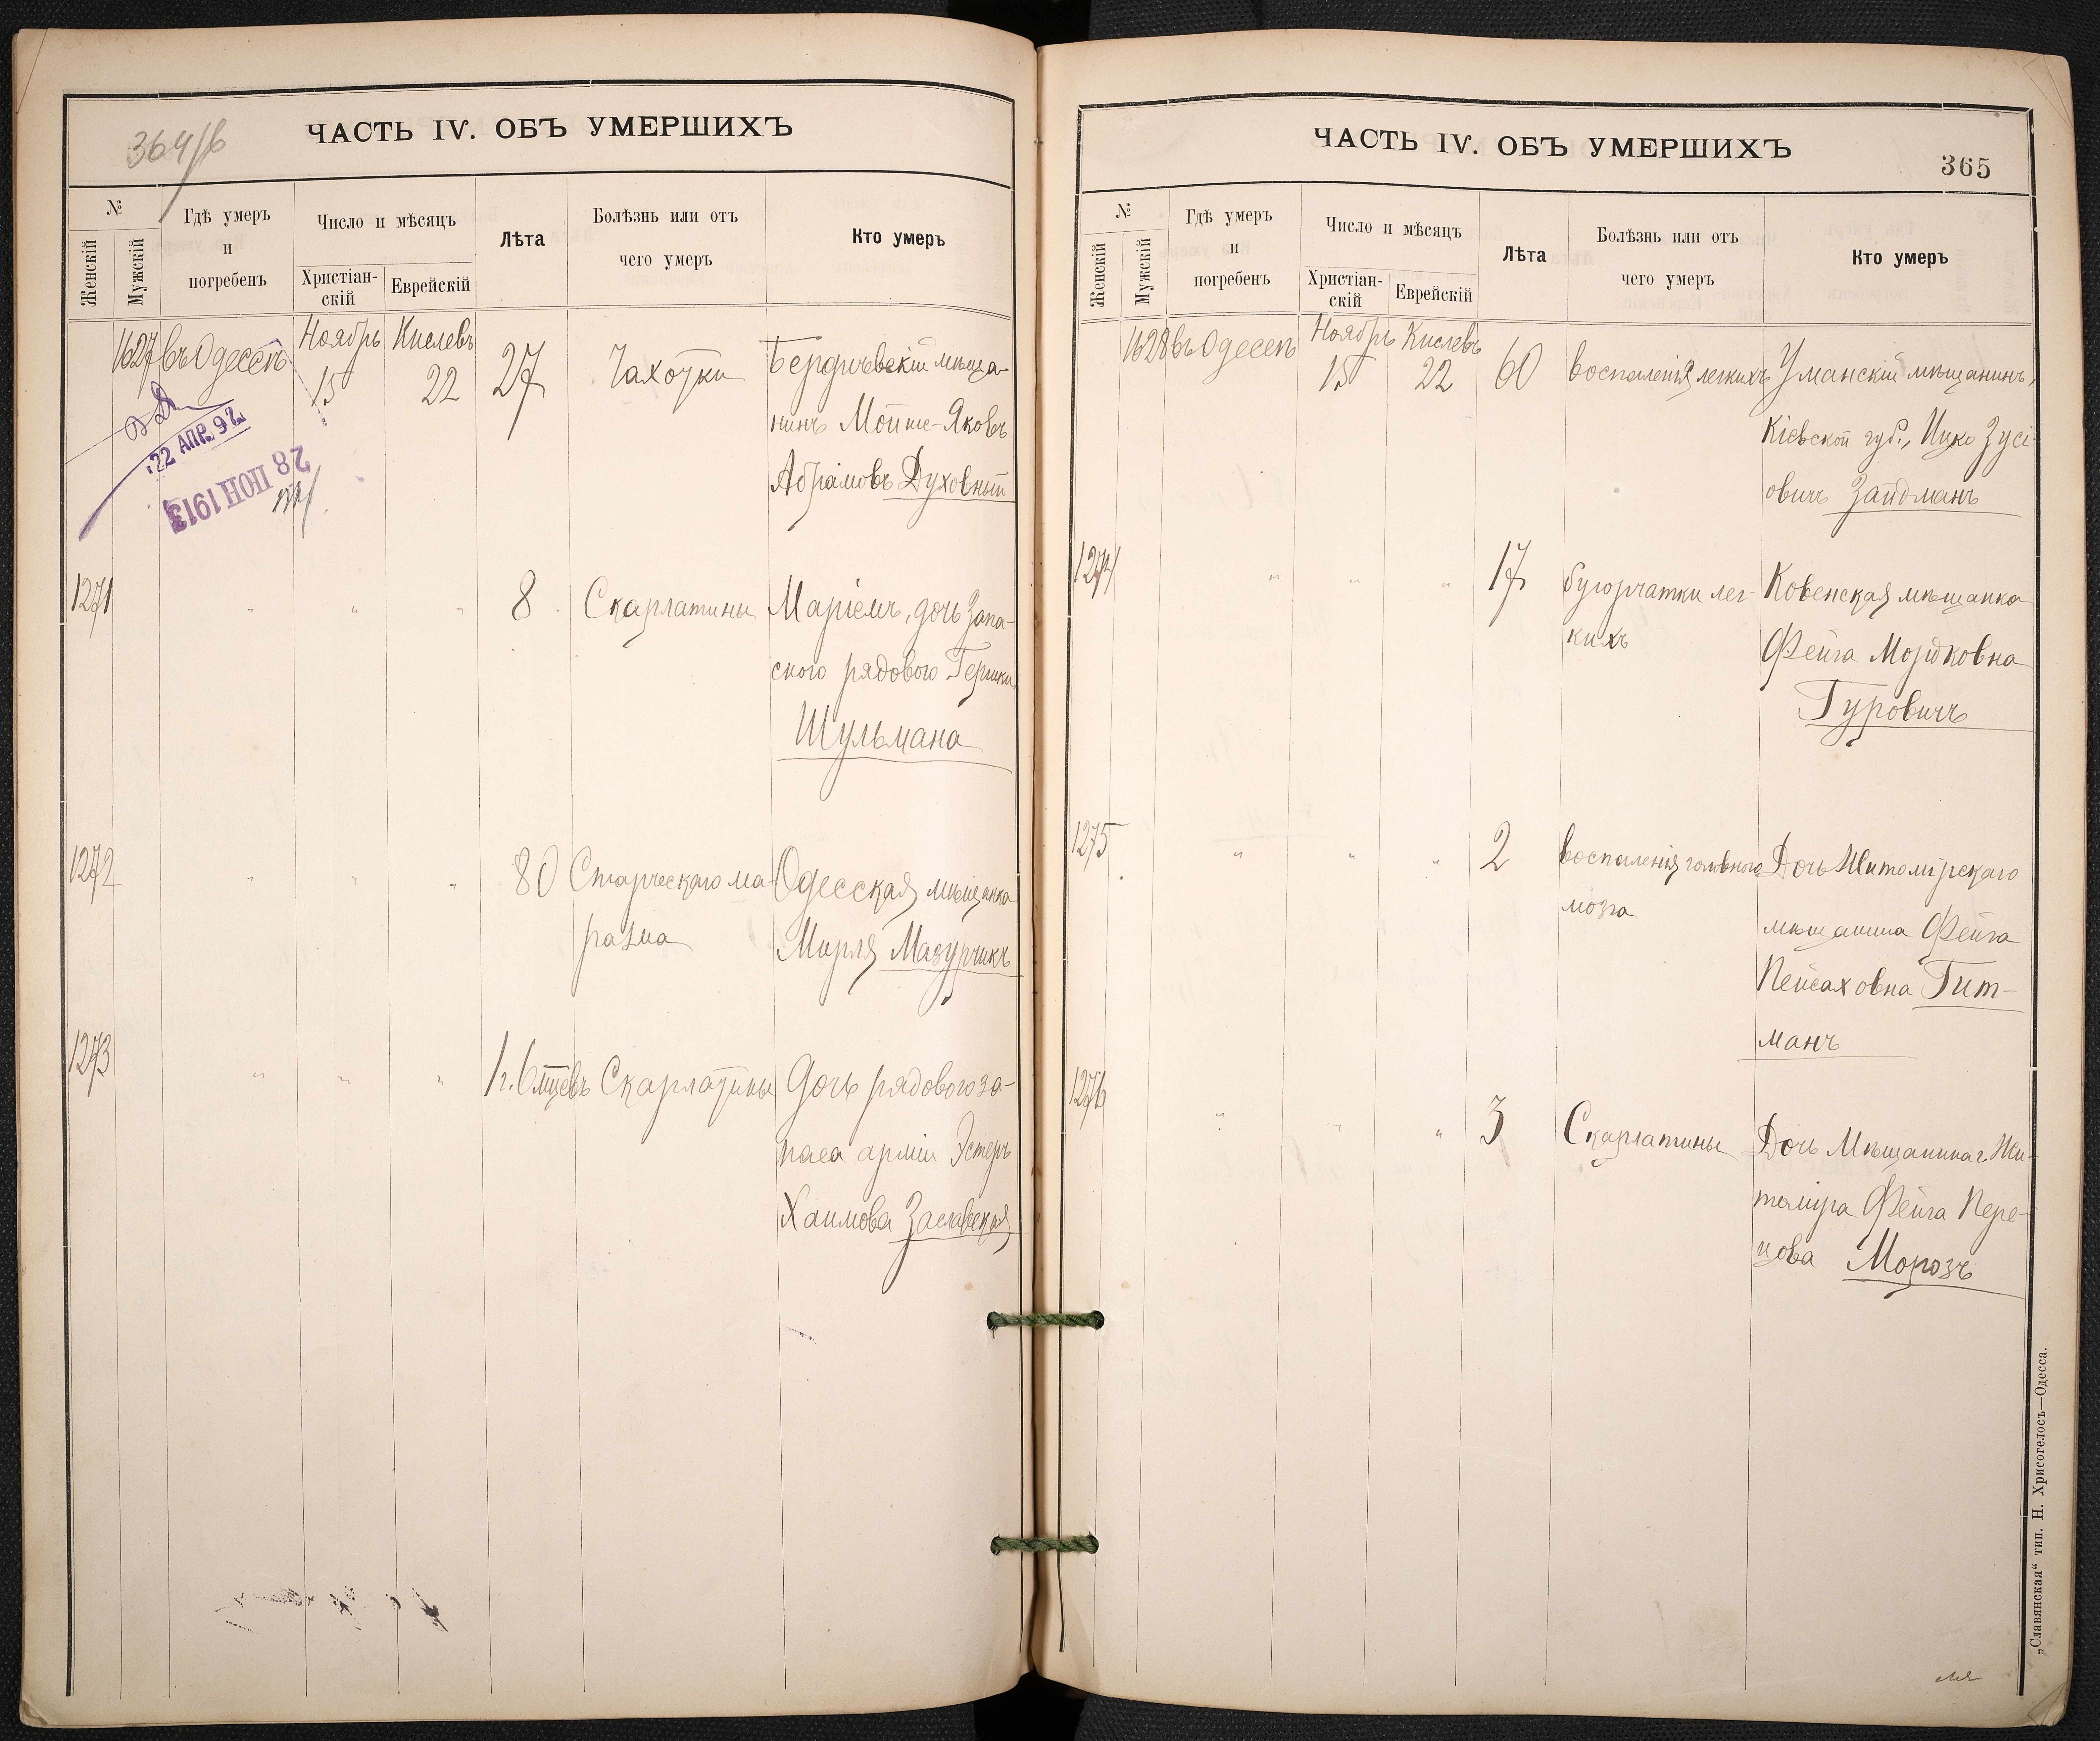 364/в
ЧАСТЬ IV. ОБЪ УМЕРШИХЪ
№
Женскій
Мужскій
Гдѣ умеръ
и
погребенъ
Число и мѣсяцъ
Христіан-
скій
Еврейскій
Лѣта
Болѣзнь или отъ
чего умеръ
Кто умеръ
1627 въ Одессѣ Ноябрь 15 Кислевъ 22 27 Чахотки Бердичевскій мѣща-
нинъ Мойше-Яковъ
Абрамовъ Духовный
22 АПР. 92
28 ІЮН 1913
1271 " " " 8 Скарлатины Маріемъ, дочь Запа-
сного рядового Гершки
Шульмана
1272 " " " 80 Старческаго ма- Одесская мѣщанка
разма Мирля Мазурчикъ
1273 " " " 1 г. 6 мцевъ Скарлатины Дочь рядового за-
паса арміи Эстеръ
Хаимова Заславская
ЧАСТЬ IV. ОБЪ УМЕРШИХЪ
365
№
Женскій
Мужскій
Гдѣ умеръ
и
погребенъ
Число и мѣсяцъ
Христіан-
скій
Еврейскій
Лѣта
Болѣзнь или отъ
чего умеръ
Кто умеръ
1628 въ Одессѣ Ноябрь 15 Кислевъ 22 60 воспаленія легкихъ Уманскій мѣщанинъ,
Кіевской губ., Ицко Зусі-
овичъ Зайдманъ
1274 " " " 17 бугорчатки лег- Ковенская мѣщанка
кихъ Фейга Мордковна
Гуровичъ
1275 " " " 2 воспаленія головного Дочь Житомірскаго
мозга мѣщанина Фейга
Пейсаховна Гит-
манъ
1276 " " " 3 Скарлатины Дочь Мѣщанина г. Жи-
томіра Фейга Пере-
цова Морозъ
„Славянская“ тип. Н. Хрисогелосъ—Одесса.